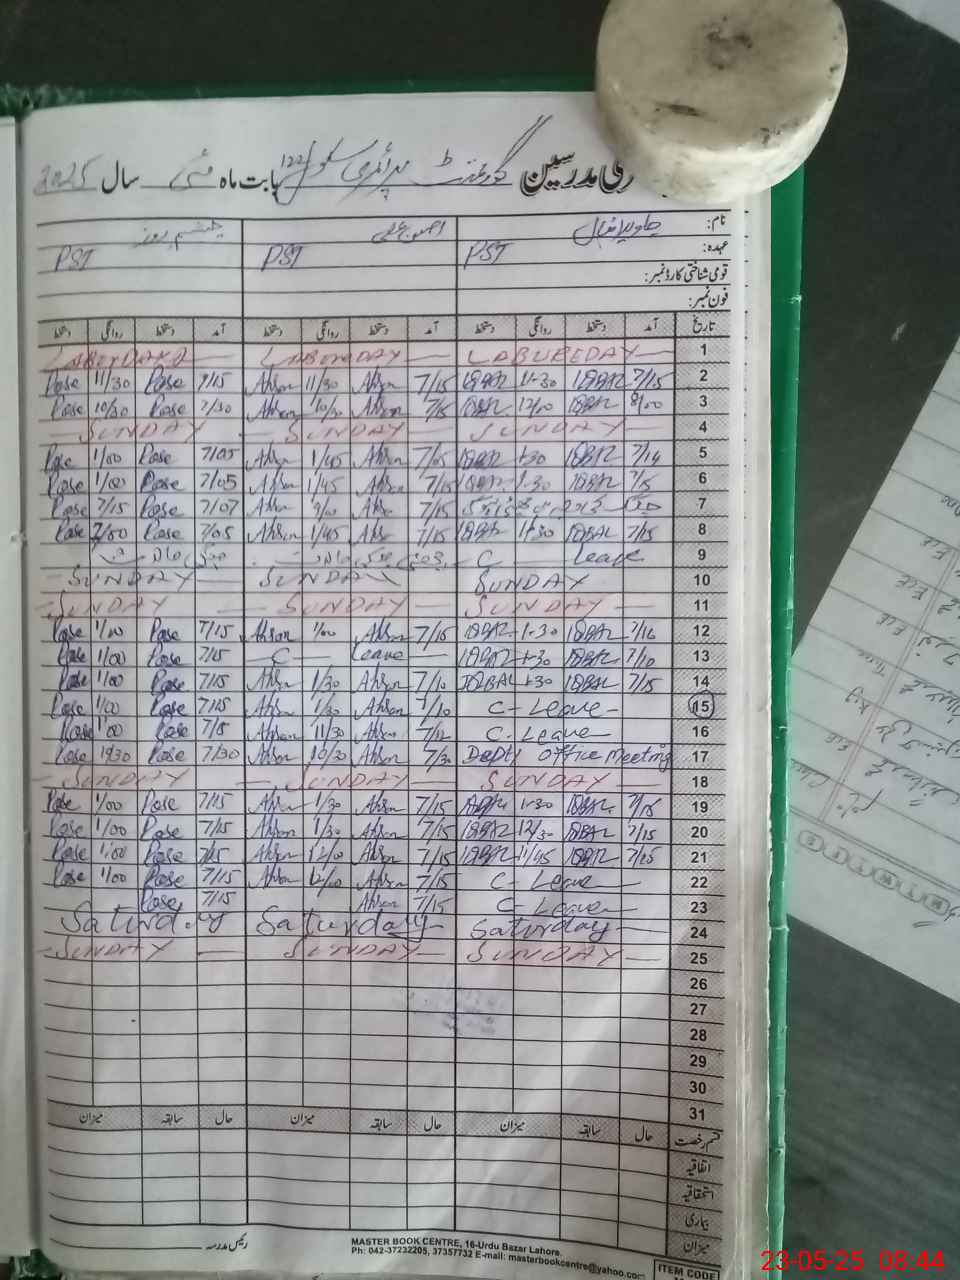 حاضری مدرسین گورنمنٹ پرائمری سکول 122 بابت ماہ مئی سال 2025
نام: جاوید اقبال احسن علی
عہدہ: PST PST PST
قومی شناختی کارڈ نمبر:
فون نمبر:
تاریخ آمد دستخط روانگی دستخط آمد دستخط روانگی دستخط آمد دستخط روانگی دستخط
LABOURDAY — LABOURDAY — LABUREDAY — 1
Pose 11/30 Pose 7/15 Ahsan 11/30 Ahsan 7/15 IQBAL 11-30 IQBAL 7/15 2
Pose 10/30 Pose 7/30 Ahsan 10/30 Ahsan 7/15 IQBAL 12/00 IQBAL 8/00 3
— SUNDAY — SUNDAY — SUNDAY 4
Pose 1/00 Pose 7/05 Ahsan 1/45 Ahsan 7/15 IQBAL 1-30 IQBAL 7/14 5
Pose 1/00 Pose 7/05 Ahsan 1/45 Ahsan 7/15 IQBAL 1-30 IQBAL 7/15 6
Pose 7/15 Pose 7/07 Ahsan Ahsan 7/15 7
Pose 2/00 Pose 7/05 Ahsan 1/45 Ahsan 7/15 IQBAL 1-30 IQBAL 7/15 8
C leave 9
— SUNDAY — SUNDAY SUNDAY 10
— SUNDAY — SUNDAY — SUNDAY — 11
Pose 1/00 Pose 7/15 Ahsan 1/00 Ahsan 7/15 IQBAL 1-30 IQBAL 7/16 12
Pose 1/00 Pose 7/15 — C — leave — IQBAL 1-30 IQBAL 7/10 13
Pose 1/00 Pose 7/15 Ahsan 1/30 Ahsan 7/10 IQBAL 1-30 IQBAL 7/15 14
Pose 1/00 Pose 7/15 Ahsan 1/30 Ahsan 7/10 C-Leave- 15
Pose 1/00 Pose 7/15 Ahsan 11/30 Ahsan 7/12 C-Leave 16
Pose 10/30 Pose 7/30 Ahsan 10/30 Ahsan 7/30 Depty office Meeting 17
— SUNDAY — SUNDAY — SUNDAY 18
Pose 1/00 Pose 7/15 Ahsan 1/30 Ahsan 7/15 IQBAL 1-30 IQBAL 7/15 19
Pose 1/00 Pose 7/15 Ahsan 1/30 Ahsan 7/15 IQBAL 12/30 IQBAL 7/15 20
Pose 1/00 Pose 7/15 Ahsan 12/10 Ahsan 7/15 IQBAL 11/45 IQBAL 7/15 21
Pose 1/00 Pose 7/15 Ahsan 12/10 Ahsan 7/15 C-Leave 22
Pose 7/15 Ahsan 7/15 C-Leave 23
Saturday Saturday Saturday 24
SUNDAY — SUNDAY — SUNDAY — 25
26
27
28
29
30
31
قسم رخصت حال سابقہ میزان حال سابقہ میزان حال سابقہ میزان
اتفاقیہ
استحقاقیہ
بیماری
میزان
رئیس مدرسہ
MASTER BOOK CENTRE, 16-Urdu Bazar Lahore.
Ph: 042-37232205, 37357732 E-mail: masterbookcentre@yahoo.com
ITEM CODE
23-05-25 08:44